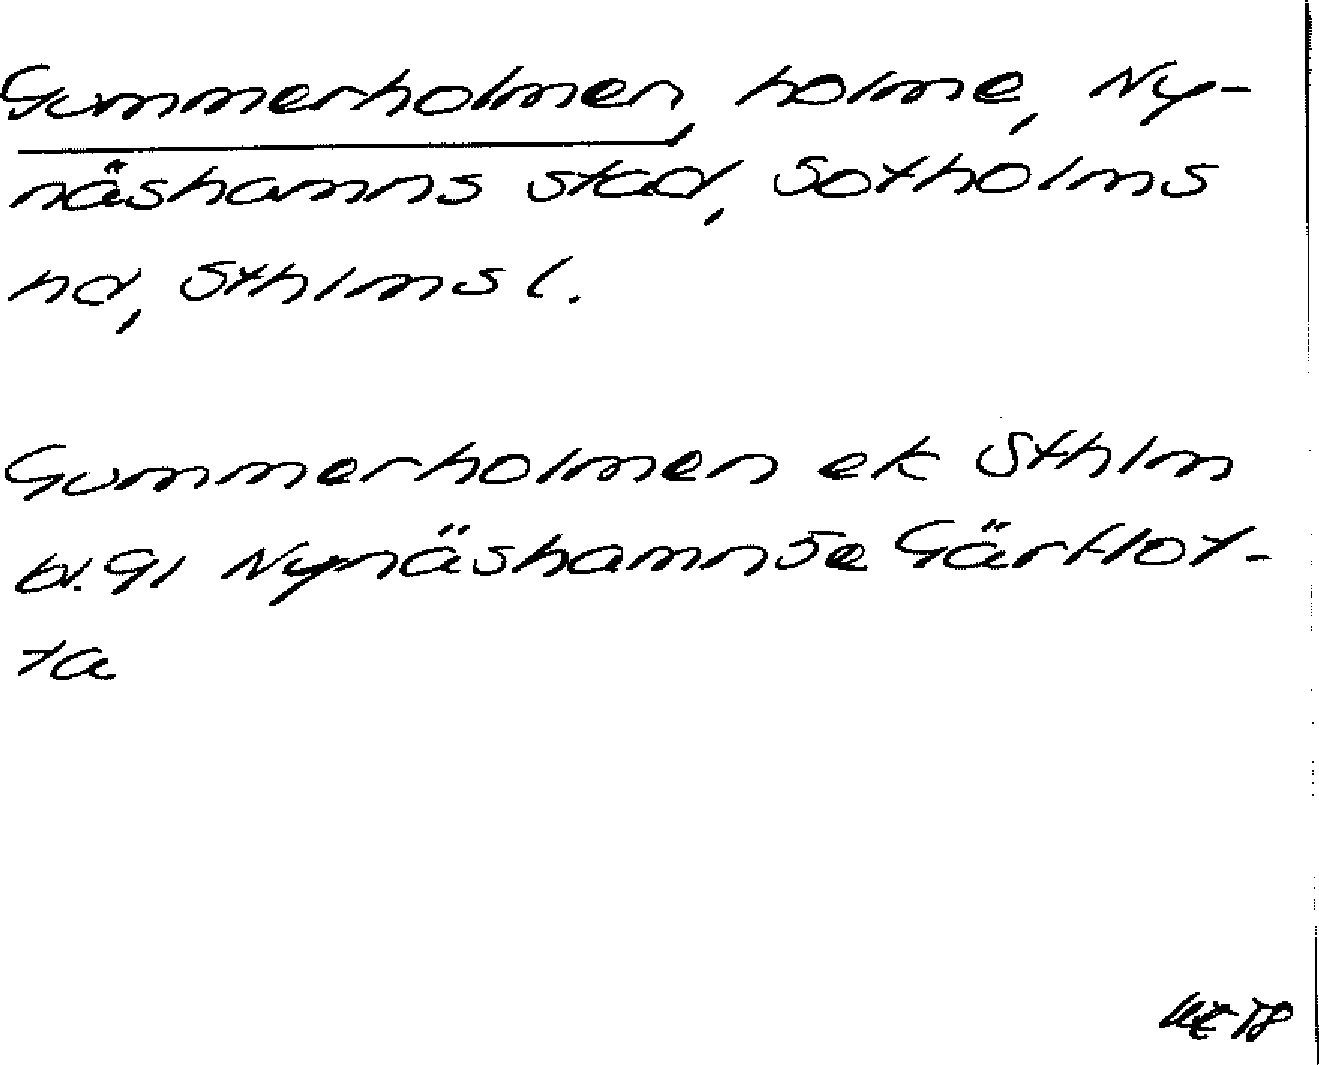 Gummerholmen, holme, Ny-
näshamns stad, Sotholms
hd, Sthlms l.
Gummerholmen ek Sthlm
bl. 91 Nynäshamn Se Gärflot-
ta